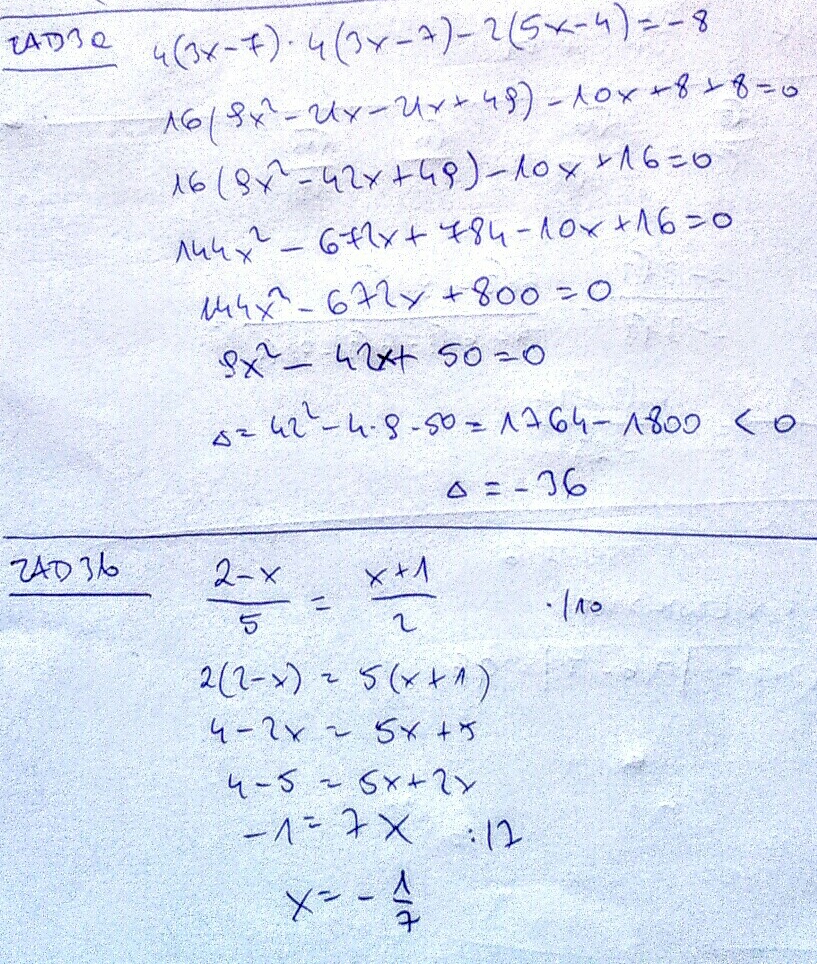 ZAD3a 4(3x-7)·4(3x-7)-2(5x-4)=-8
16(9x²-21x-21x+49)-10x+8+8=0
16(9x²-42x+49)-10x+16=0
144x²-672x+784-10x+16=0
144x²-672x+800=0
9x²-42x+50=0
Δ=42²-4·9·50=1764-1800<0
Δ=-36
ZAD3b (2-x)/5=(x+1)/2 ·/10
2(2-x)=5(x+1)
4-2x=5x+5
4-5=5x+2x
-1=7x :/7
x=-1/7